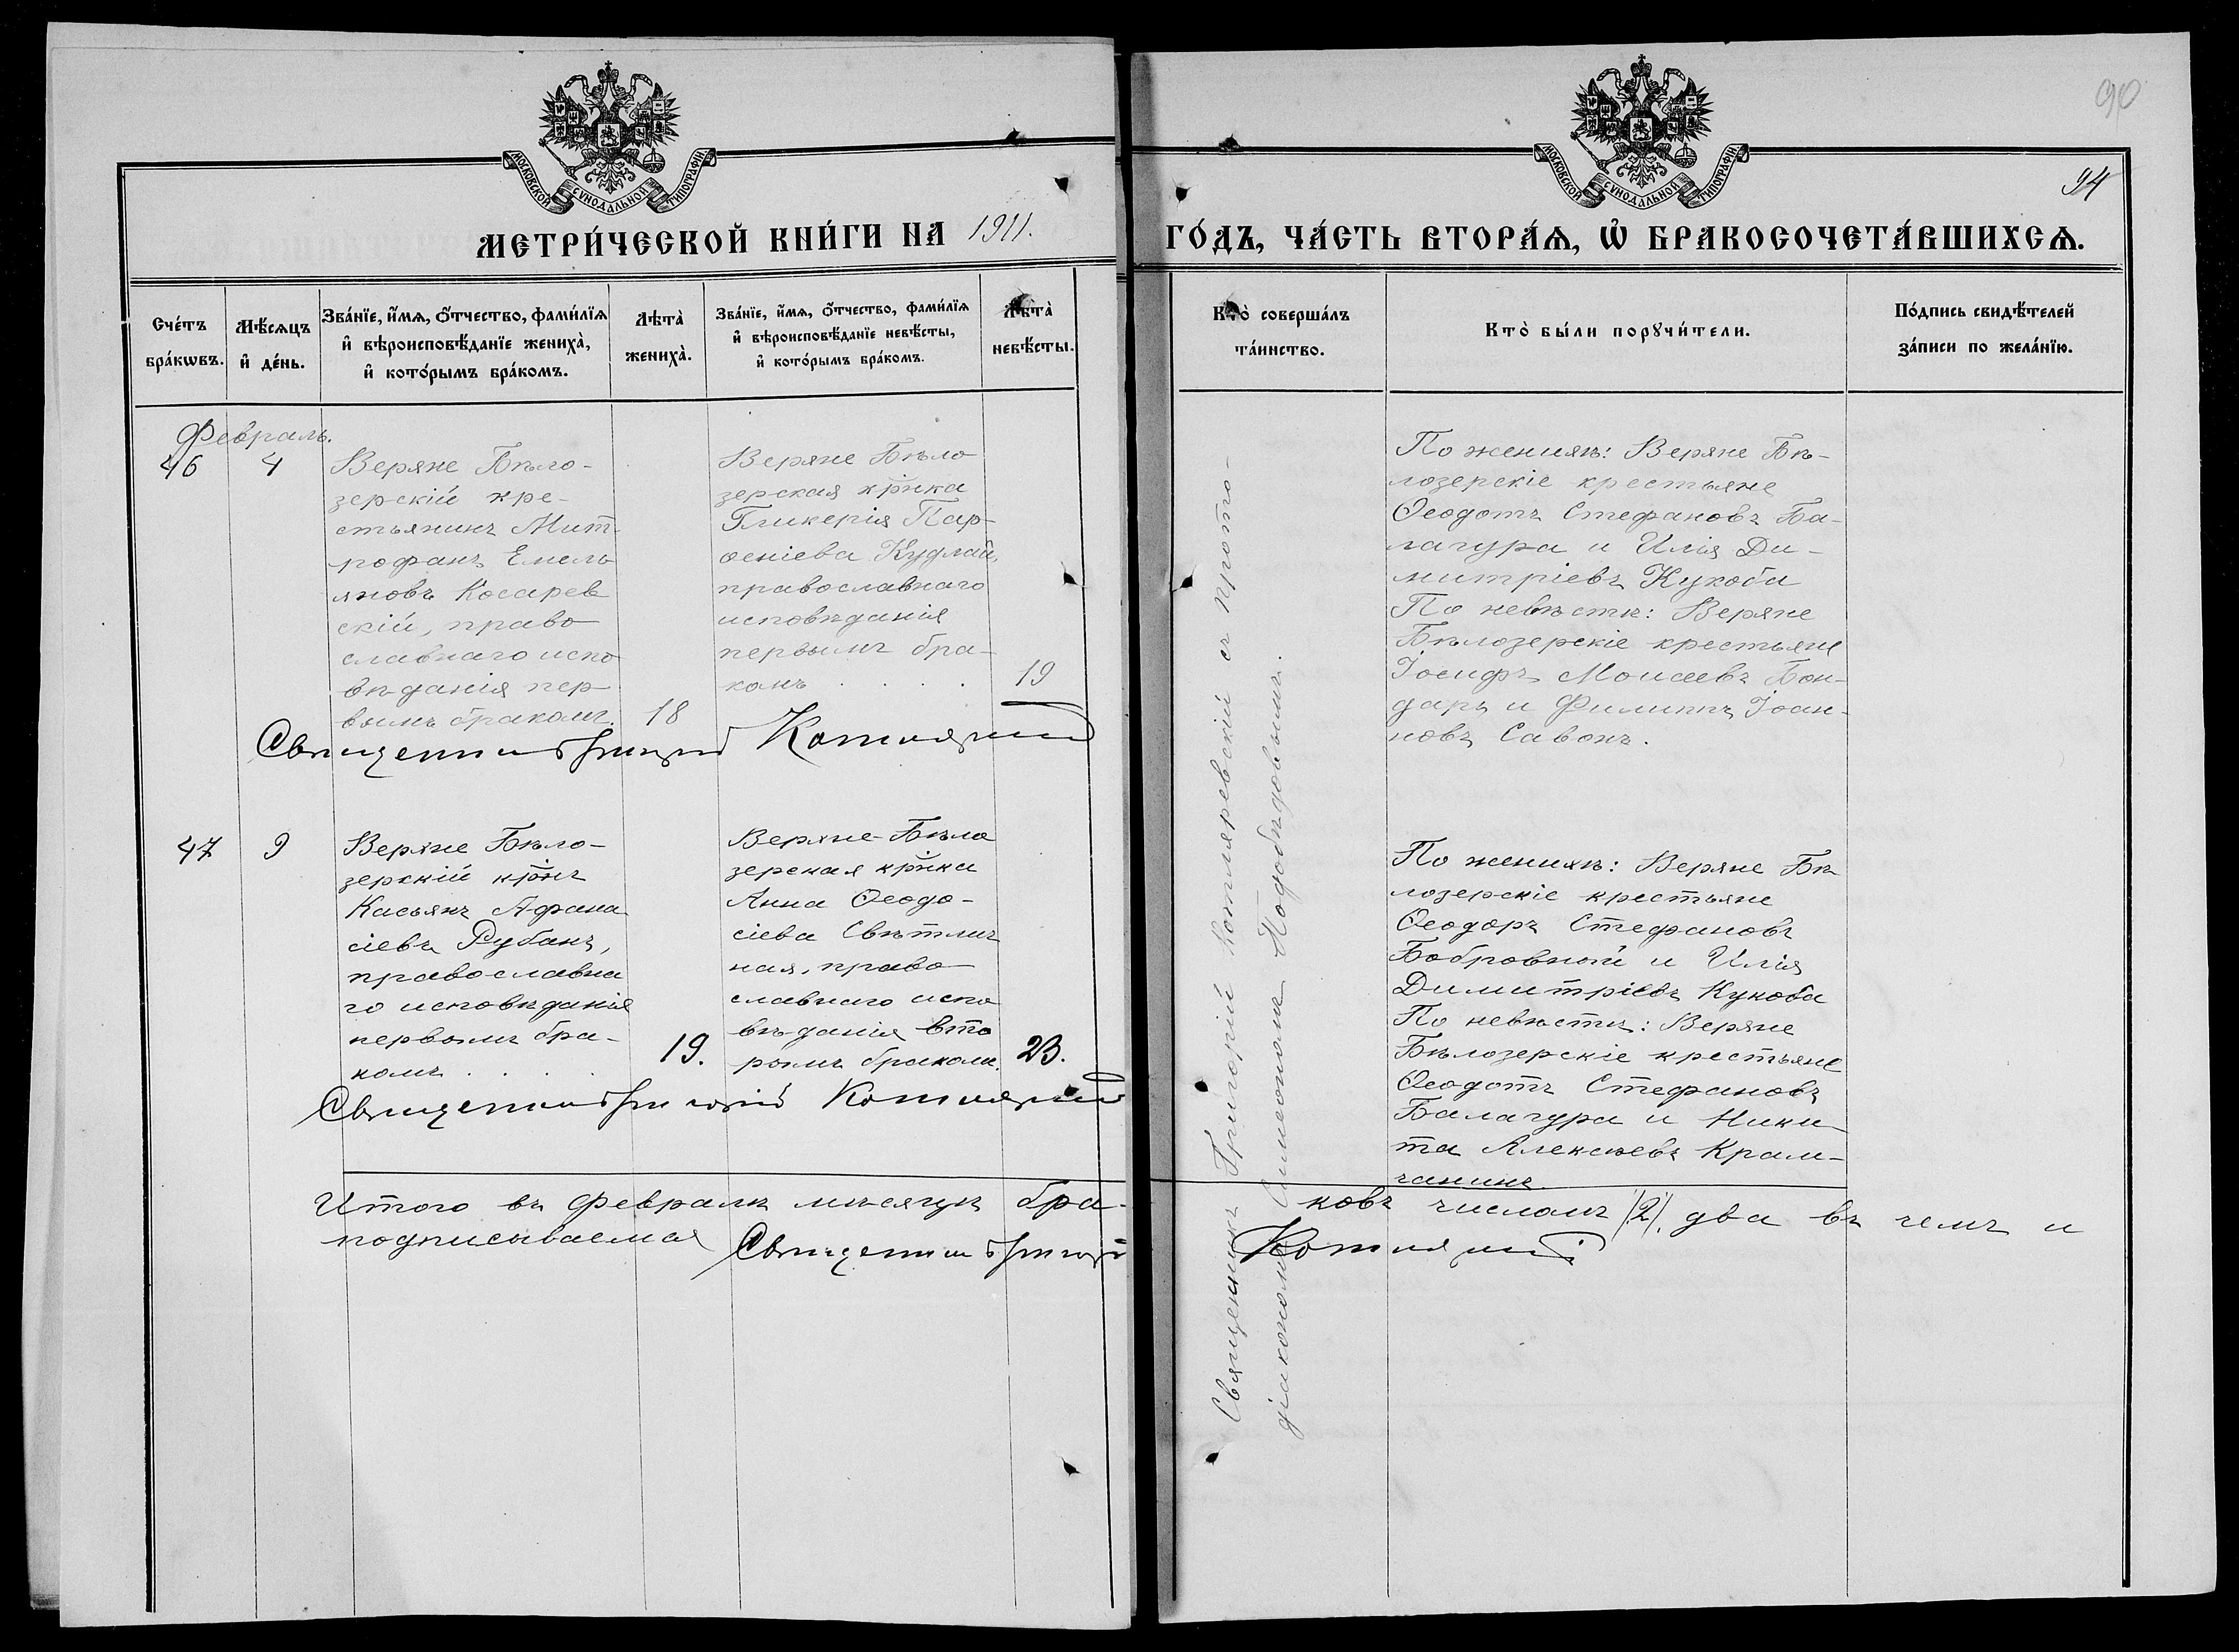 90
94
МОСКОВСКОЙ СѴНОДАЛЬНОЙ ТИПОГРАФІИ
МОСКОВСКОЙ СѴНОДАЛЬНОЙ ТИПОГРАФІИ
МЕТРИ́ЧЕСКОЙ КНИ́ГИ НА 1911.
ГО́ДЪ, ЧА́СТЬ ВТОРА́Ѧ, Ѽ БРАКОСОЧЕТА́ВШИХСѦ.
Сче́тъ
бра́кѡвъ.
Мѣ́сѧцъ
и҆ де́нь.
Зва́нїе, и҆́мѧ, ѻ҆́тчество, фами́лїѧ
и҆ вѣроисповѣ́данїе жениха̀,
и҆ кото́рымъ бра́комъ.
Лѣта̀
жениха̀.
Зва́нїе, и҆́мѧ, ѻ҆́тчество, фами́лїѧ
и҆ вѣроисповѣ́данїе невѣ́сты,
и҆ кото́рымъ бра́комъ.
Лѣта̀
невѣ́сты.
Кто̀ соверша́лъ
та́инство.
Кто̀ бы́ли порꙋчи́тели.
По́дпись свидѣ́телей
за́писи по жела́нїю.
Февраль.
46
4
Веряне Бѣло-
зерскій кре-
стьянинъ Мит-
рофанъ Емель
яновъ Косарев
скій, право
славнаго испо
вѣданія пер
вымъ бракомъ.
18
Веряне Бѣло
зерская крнка
Гликерія Пар-
ѳеніева Кудлай,
православнаго
исповѣданія
первымъ бра-
комъ . . . .
19
По женихѣ: Веряне Бѣ-
лозерскіе крестьяне
Ѳеодотъ Стефановъ Ба-
лагура и Илія Ди-
митріевъ Кукоба
По невѣстѣ: Веряне
Бѣлозерскіе крестьяне
Іосифъ Моисеевъ Бон-
дарь и Филиппъ Іоан-
новъ Савонъ.
Священникъ Григорій Котляревскій
47
9
Веряне Бѣло-
зерскій крнъ
Касьянъ Афана
сіевъ Рубанъ,
православна
го исповѣданія
первымъ бра-
комъ . . .
19.
Веряне-Бѣло
зерская крнка
Анна Ѳеодо-
сіева Свѣтлич
ная, право
славнаго испо
вѣданія вто
рымъ бракомъ.
23.
По женихѣ: Веряне Бѣ
лозерскіе крестьяне
Ѳеодоръ Стефановъ
Бобровной и Илія
Димитріевъ Кукоба
По невѣстѣ: Веряне
Бѣлозерскіе крестьяне
Ѳеодотъ Стефановъ
Балагура и Ники-
та Алексѣевъ Крам-
чанинъ
Священникъ Григорій Котляревскій
Священникъ Григорій Котляревскій съ прото-
діакономъ Симеономъ Подобѣдовымъ.
Итого въ февралѣ мѣсяцѣ бра-
ковъ числомъ /2/. два въ чемъ и
подписываемся Священникъ Григорій
Котляревскій